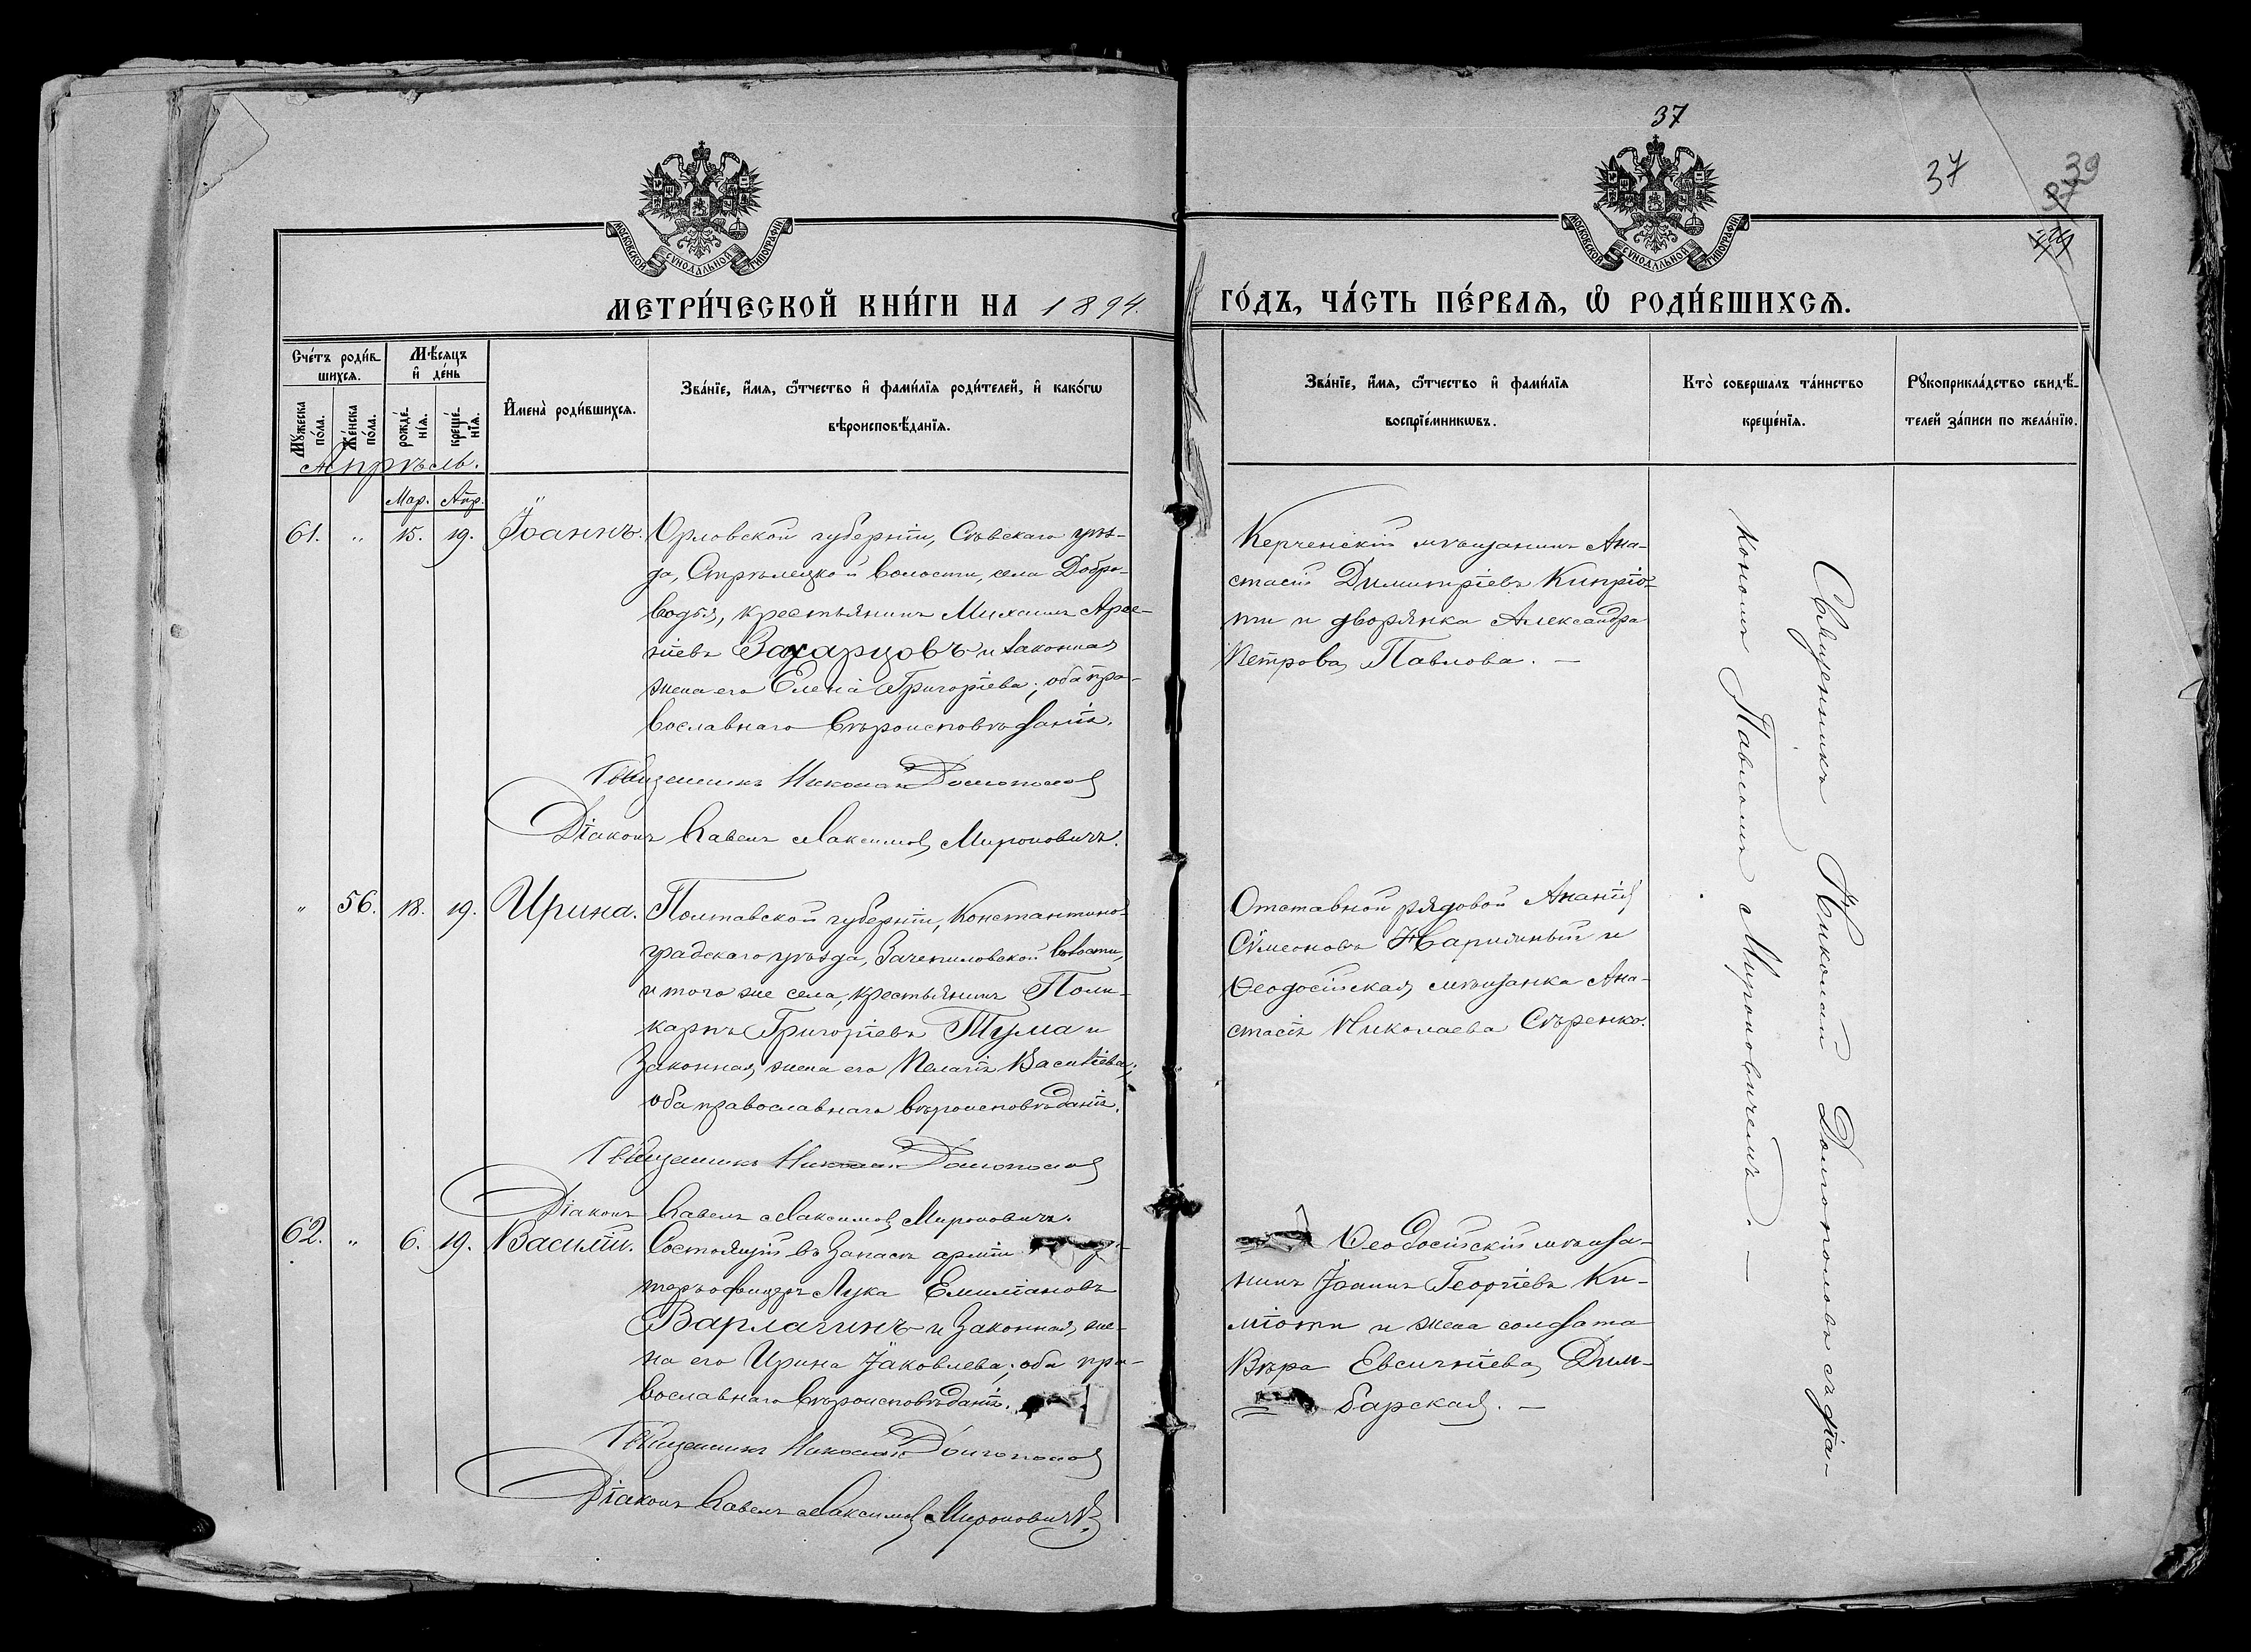 37
37
39
МОСКОВСКОЙ СѴНОДАЛЬНОЙ ТИПОГРАФІИ
МОСКОВСКОЙ СѴНОДАЛЬНОЙ ТИПОГРАФІИ
МЕТРИ́ЧЕСКОЙ КНИ́ГИ НА 1894.
ГО́ДЪ, ЧА́СТЬ ПЕ́РВАѦ, Ѡ҆ РОДИ́ВШИХСѦ.
Сче́тъ роди́в-
шихсѧ.
Мꙋ́жеска по́ла.
Же́нска по́ла.
Мѣ́сѧцъ
и҆ де́нь
рожде́-
нїѧ.
креще́-
нїѧ.
И҆мена̀ роди́вшихсѧ.
Зва́нїе, и҆́мѧ, ѻ҆́тчество и҆ фами́лїѧ роди́телей, и҆ како́гѡ
вѣроисповѣ́данїѧ.
Зва́нїе, и҆́мѧ, ѻ҆́тчество и҆ фами́лїѧ
воспрїе́мникѡвъ.
Кто̀ соверша́лъ та́инство
креще́нїѧ.
Рꙋкоприкла́дство свидѣ́-
телей за́писи по жела́нїю.
Апрѣль.
Мар. Апр.
61. „ 15. 19. Іоаннъ. Орловской губерніи, Сѣвскаго уѣз-
да, Стрѣлецкой волости, села Добро-
водья, крестьянинъ Михаилъ Арсе-
ніевъ Захарцовъ и законная
жена его Елена Григоріева; оба пра-
вославнаго вѣроисповѣданія.
Священникъ Николай Долгополовъ
Діаконъ Павелъ Максимовъ Мироновичъ.
Керченскій мѣщанинъ Ана-
стасій Димитріевъ Кипріо-
ти и дворянка Александра
Петрова Павлова. —
„ 56. 18. 19. Ирина. Полтавской губерніи, Константино-
градскаго уѣзда, Зачепиловской волости,
и того же села, крестьянинъ Поли-
карпъ Григоріевъ Тума и
законная жена его Пелагія Василіева;
оба православнаго вѣроисповѣданія.
Священникъ Николай Долгополовъ
Діаконъ Павелъ Максимовъ Мироновичъ.
Отставной рядовой Ананій
Сѵмеоновъ Нарижный и
Ѳеодосійская мѣщанка Ана-
стасія Николаева Сѣренко.
62. „ 6. 19. Василій. Состоящій въ запасѣ арміи
теръ-офицеръ Лука Емиліановъ
Варлагинъ и законная же-
на его Ирина Іаковлева; оба пра-
вославнаго вѣроисповѣданія.
Священникъ Николай Долгополовъ
Діаконъ Павелъ Максимовъ Мироновичъ.
Ѳеодосійскій мѣща-
нинъ Іоаннъ Георгіевъ Ки-
міоти и жена солдата
Вѣра Евсигніева Дим-
барская. —
Священникъ Николай Долгополовъ съ діа-
кономъ Павломъ Мироновичемъ. —